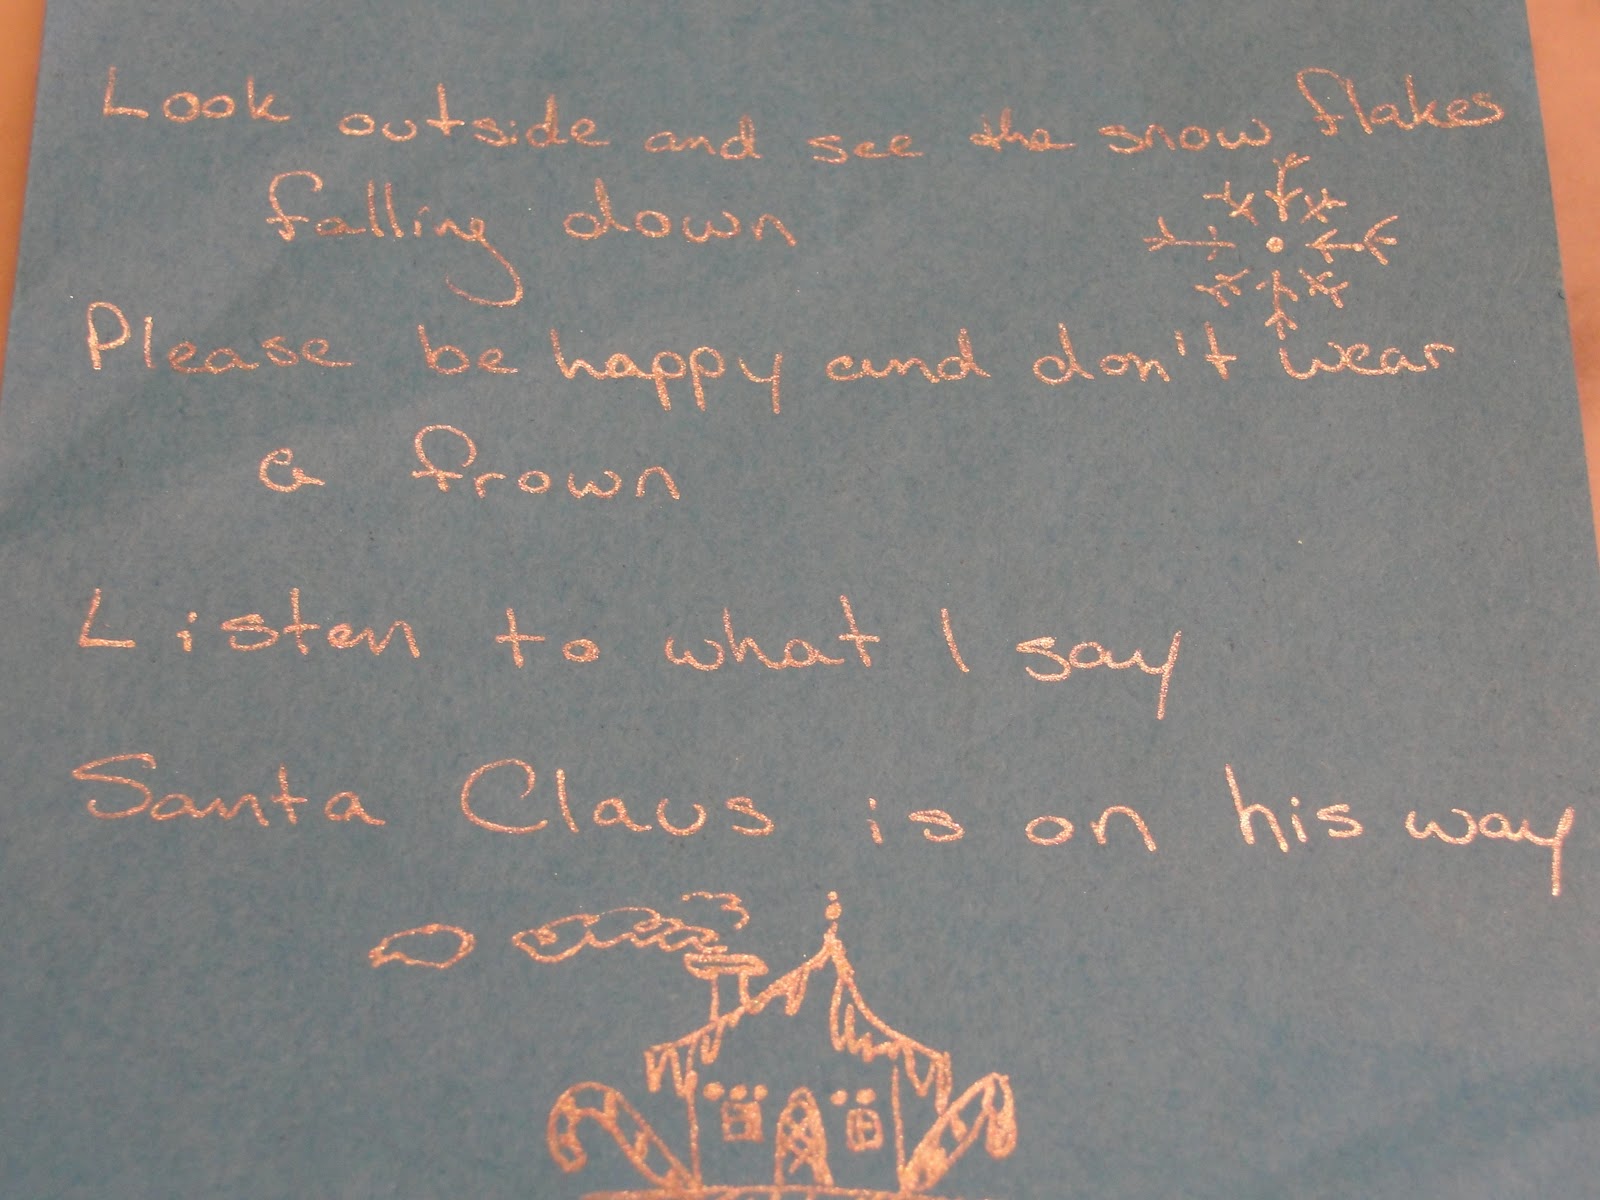 Look outside and see the snow flakes
falling down
Please be happy and don't wear
a frown
Listen to what I say
Santa Claus is on his way